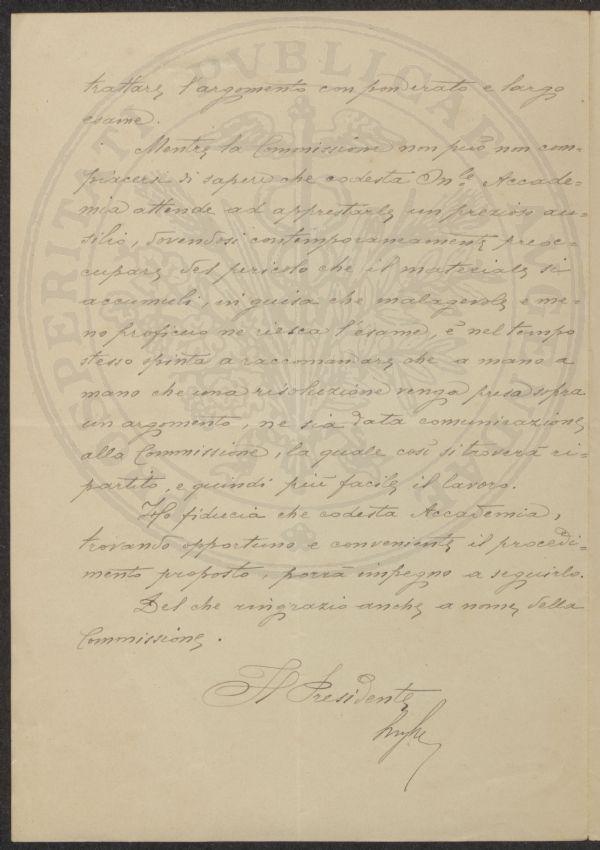 trattare l'argomento con ponderato e largo
esame.
Mentre la Commissione non può non com-
piacersi di sapere che codesta On.le Accade-
mia attende ad apprestarle un prezioso au-
silio, dovendosi contemporaneamente preoc-
cupare del pericolo che il materiale si
accumuli, in guisa che malagevole e me-
no proficuo ne riesca l'esame, è nel tempo
stesso spinta a raccomandare che a mano a
mano che una risoluzione venga presa sopra
un argomento, ne sia data comunicazione
alla Commissione, la quale così si troverà ri-
partito, e quindi più facile il lavoro.
Ho fiducia che codesta Accademia,
trovando opportuno e conveniente il procedi-
mento proposto, porrà impegno a seguirlo.
Del che ringrazio anche a nome della
Commissione.
Il Presidente